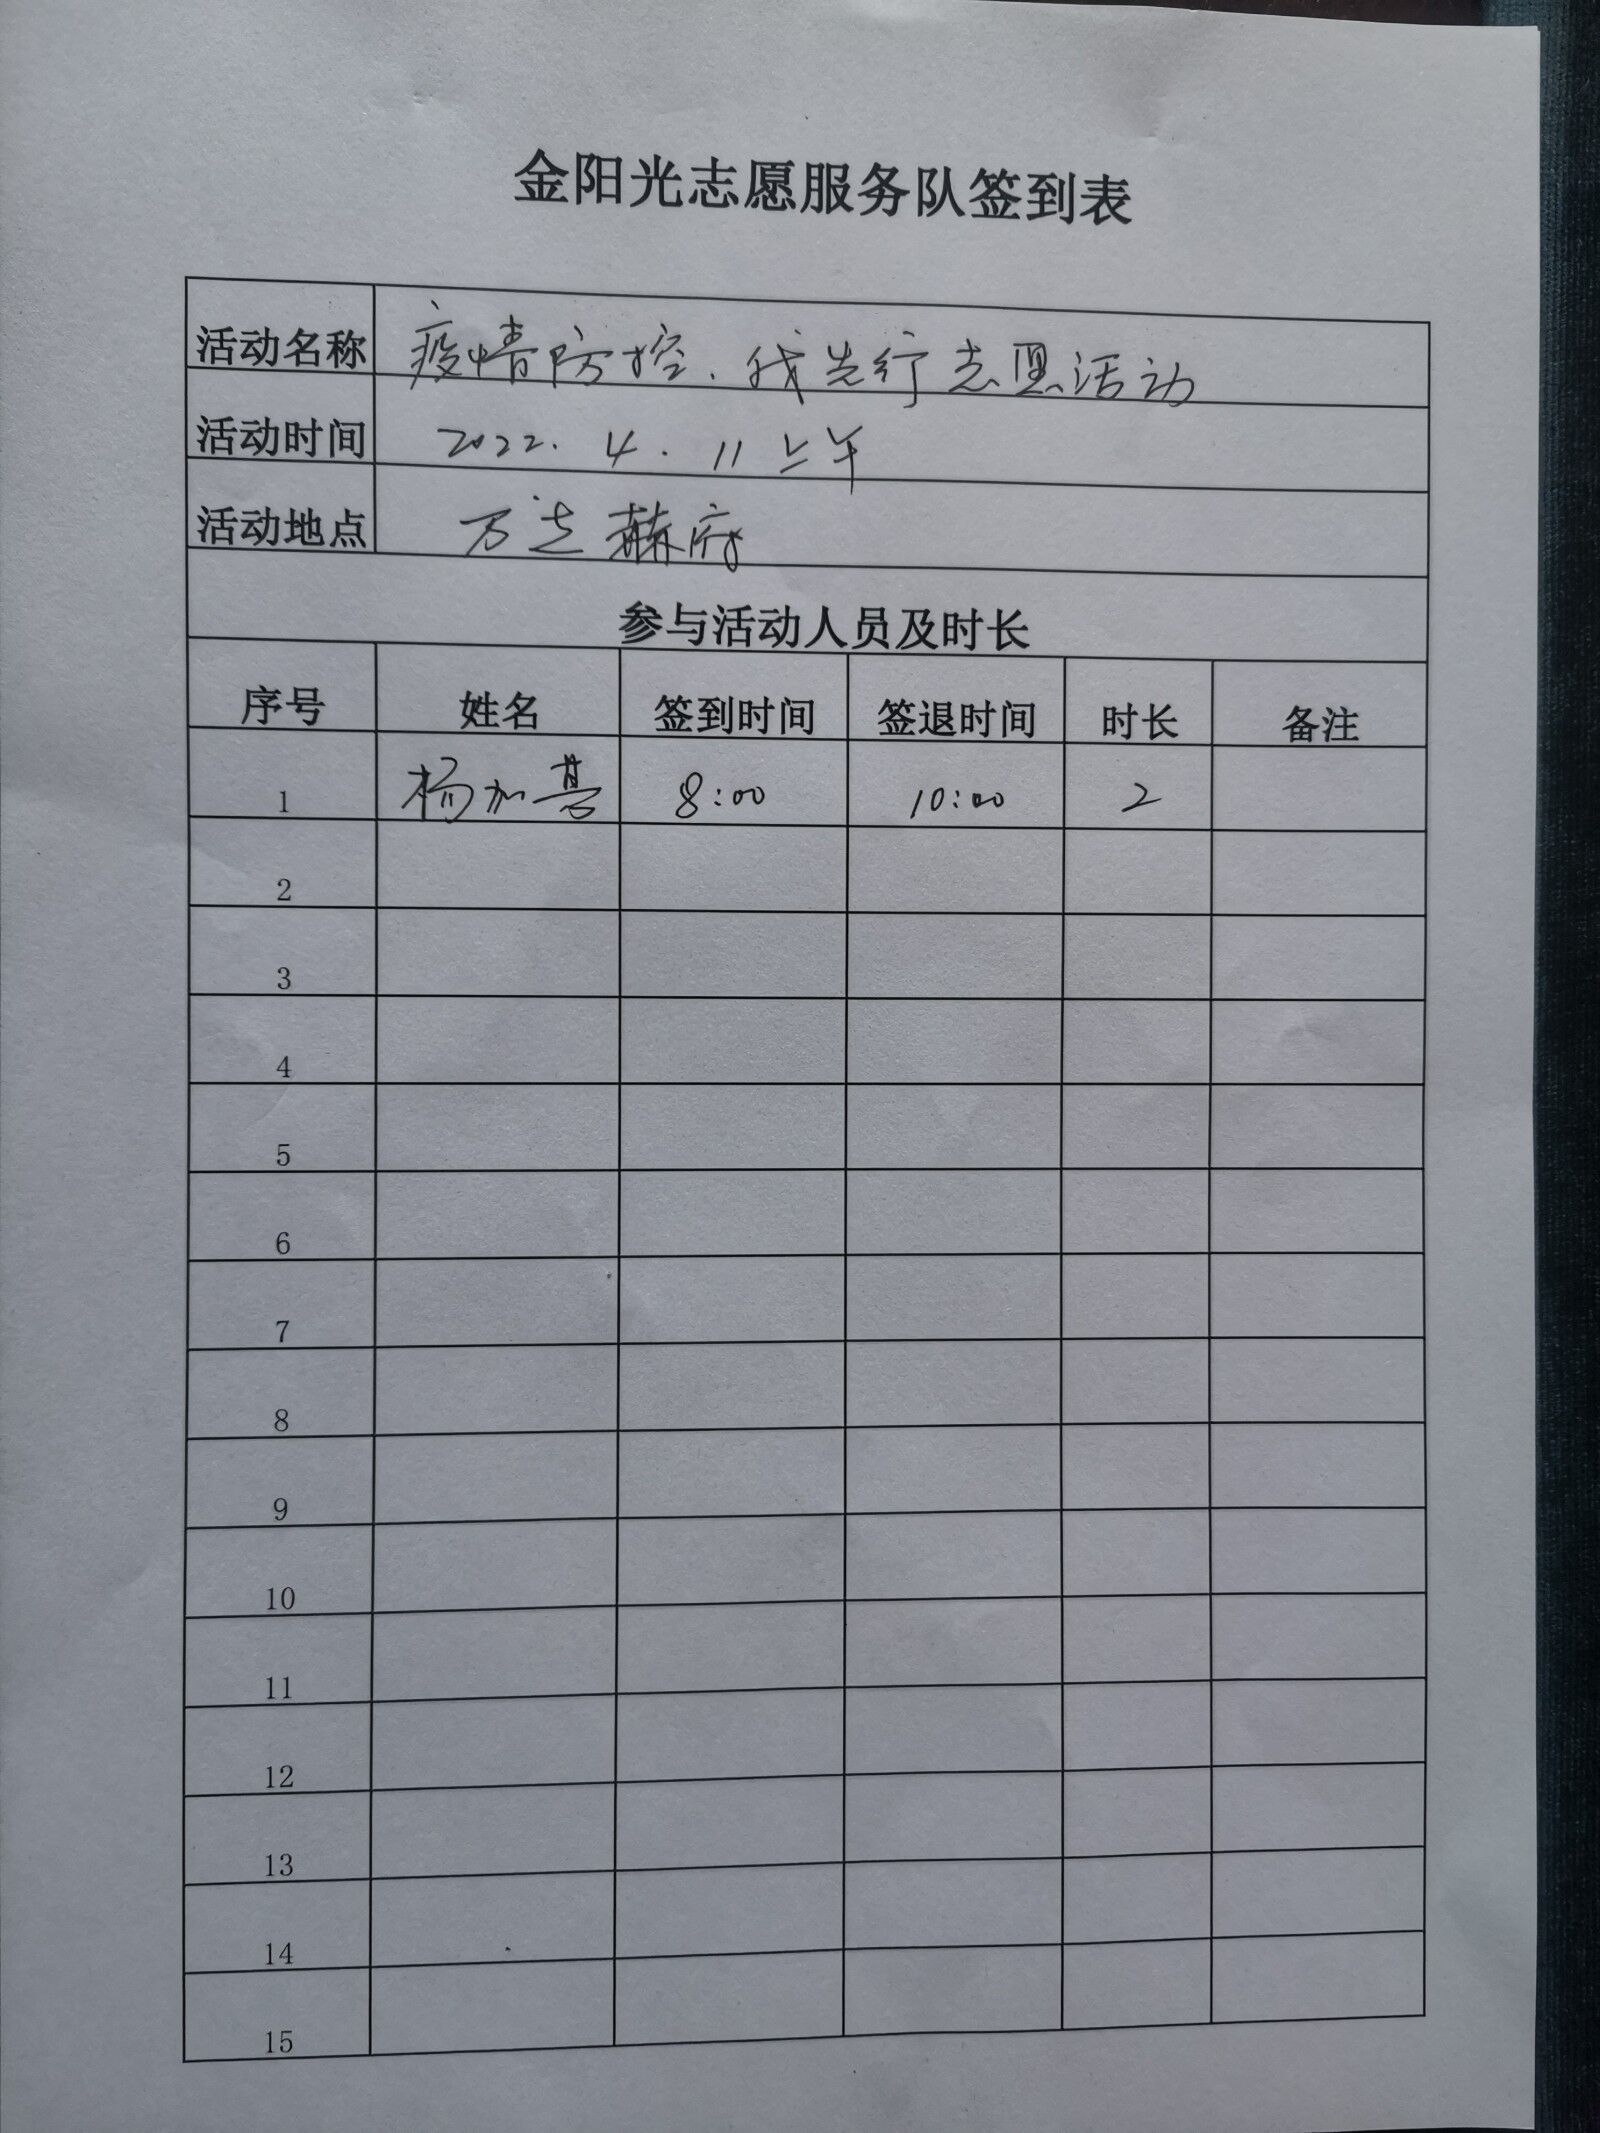 金阳光志愿服务队签到表
活动名称 疫情防控、我先行志愿活动
活动时间 2022.4.11上午
活动地点 万达赫府
参与活动人员及时长
序号 姓名 签到时间 签退时间 时长 备注
1 杨加 8:00 10:00 2
2
3
4
5
6
7
8
9
10
11
12
13
14
15